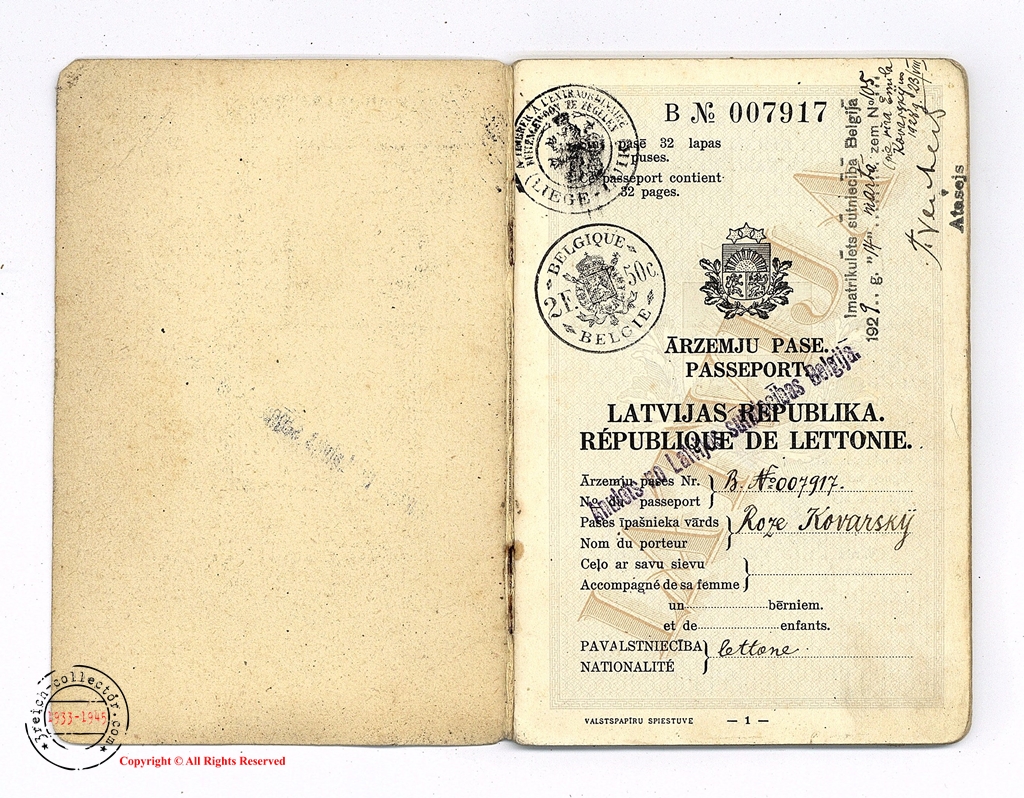 B № 007917
pasē 32 lapas
puses.
Ce passeport contient
32 pages.
(LIÉGE-LUIK)
BELGIQUE
2F. 50c.
BELGIE
ĀRZEMJU PASE.
PASSEPORT.
LATVIJAS REPUBLIKA.
RÉPUBLIQUE DE LETTONIE.
Izdots no Latvijas sūtniecības Belgijā.
Ārzemju pases Nr. } B. № 007917.
No. du passeport
Pases īpašnieka vārds } Roze Kovarsky
Nom du porteur
Ceļo ar savu sievu }
Accompagné de sa femme
un bērniem.
et de enfants.
PAVALSTNIECĪBA } lettone.
NATIONALITÉ
VALSTSPAPĪRU SPIESTUVE — 1 —
Imatrikulēts sūtniecībā Belgijā
1929. g. "14" martā zem № 105
Kovarskijus
Atašejs
3reich-collector.com
1933-1945
Copyright © All Rights Reserved